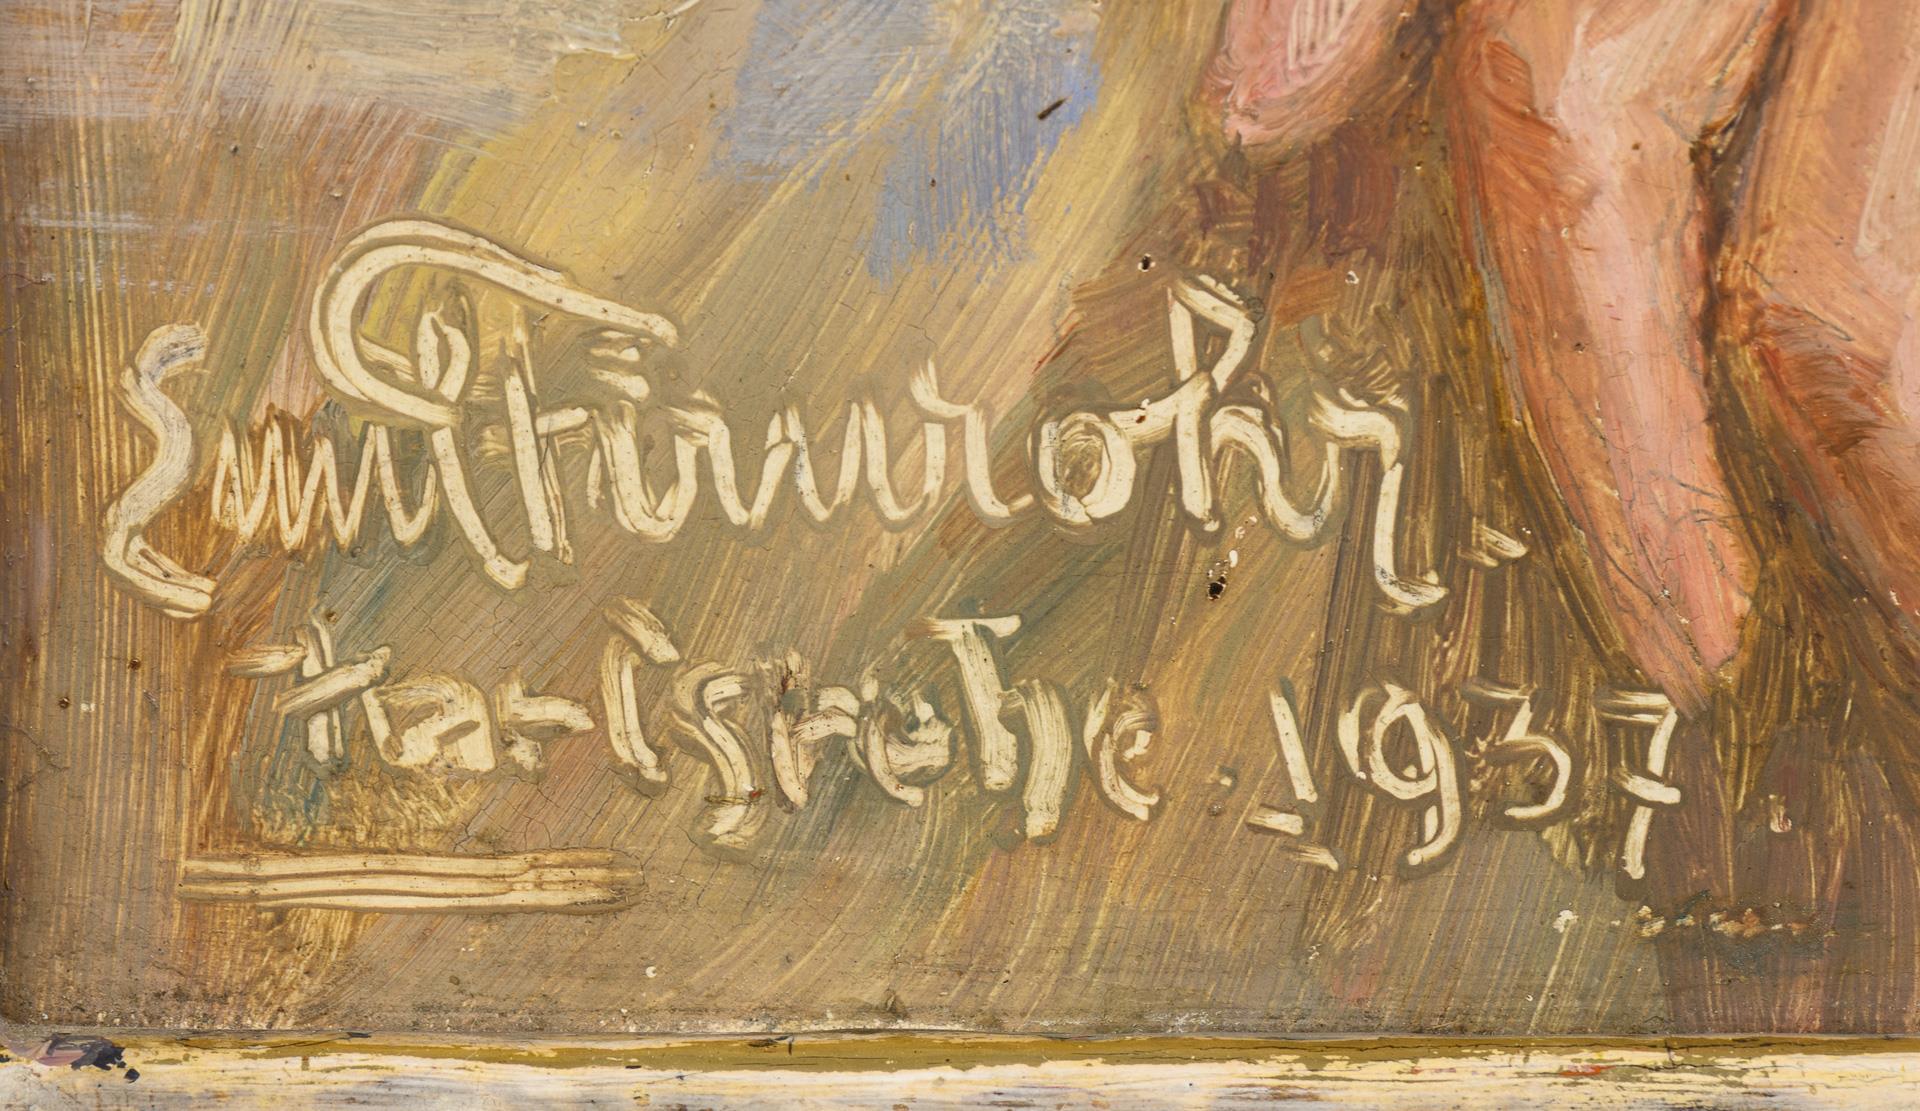 Emil Firnrohr.
Karlsruhe. 1937